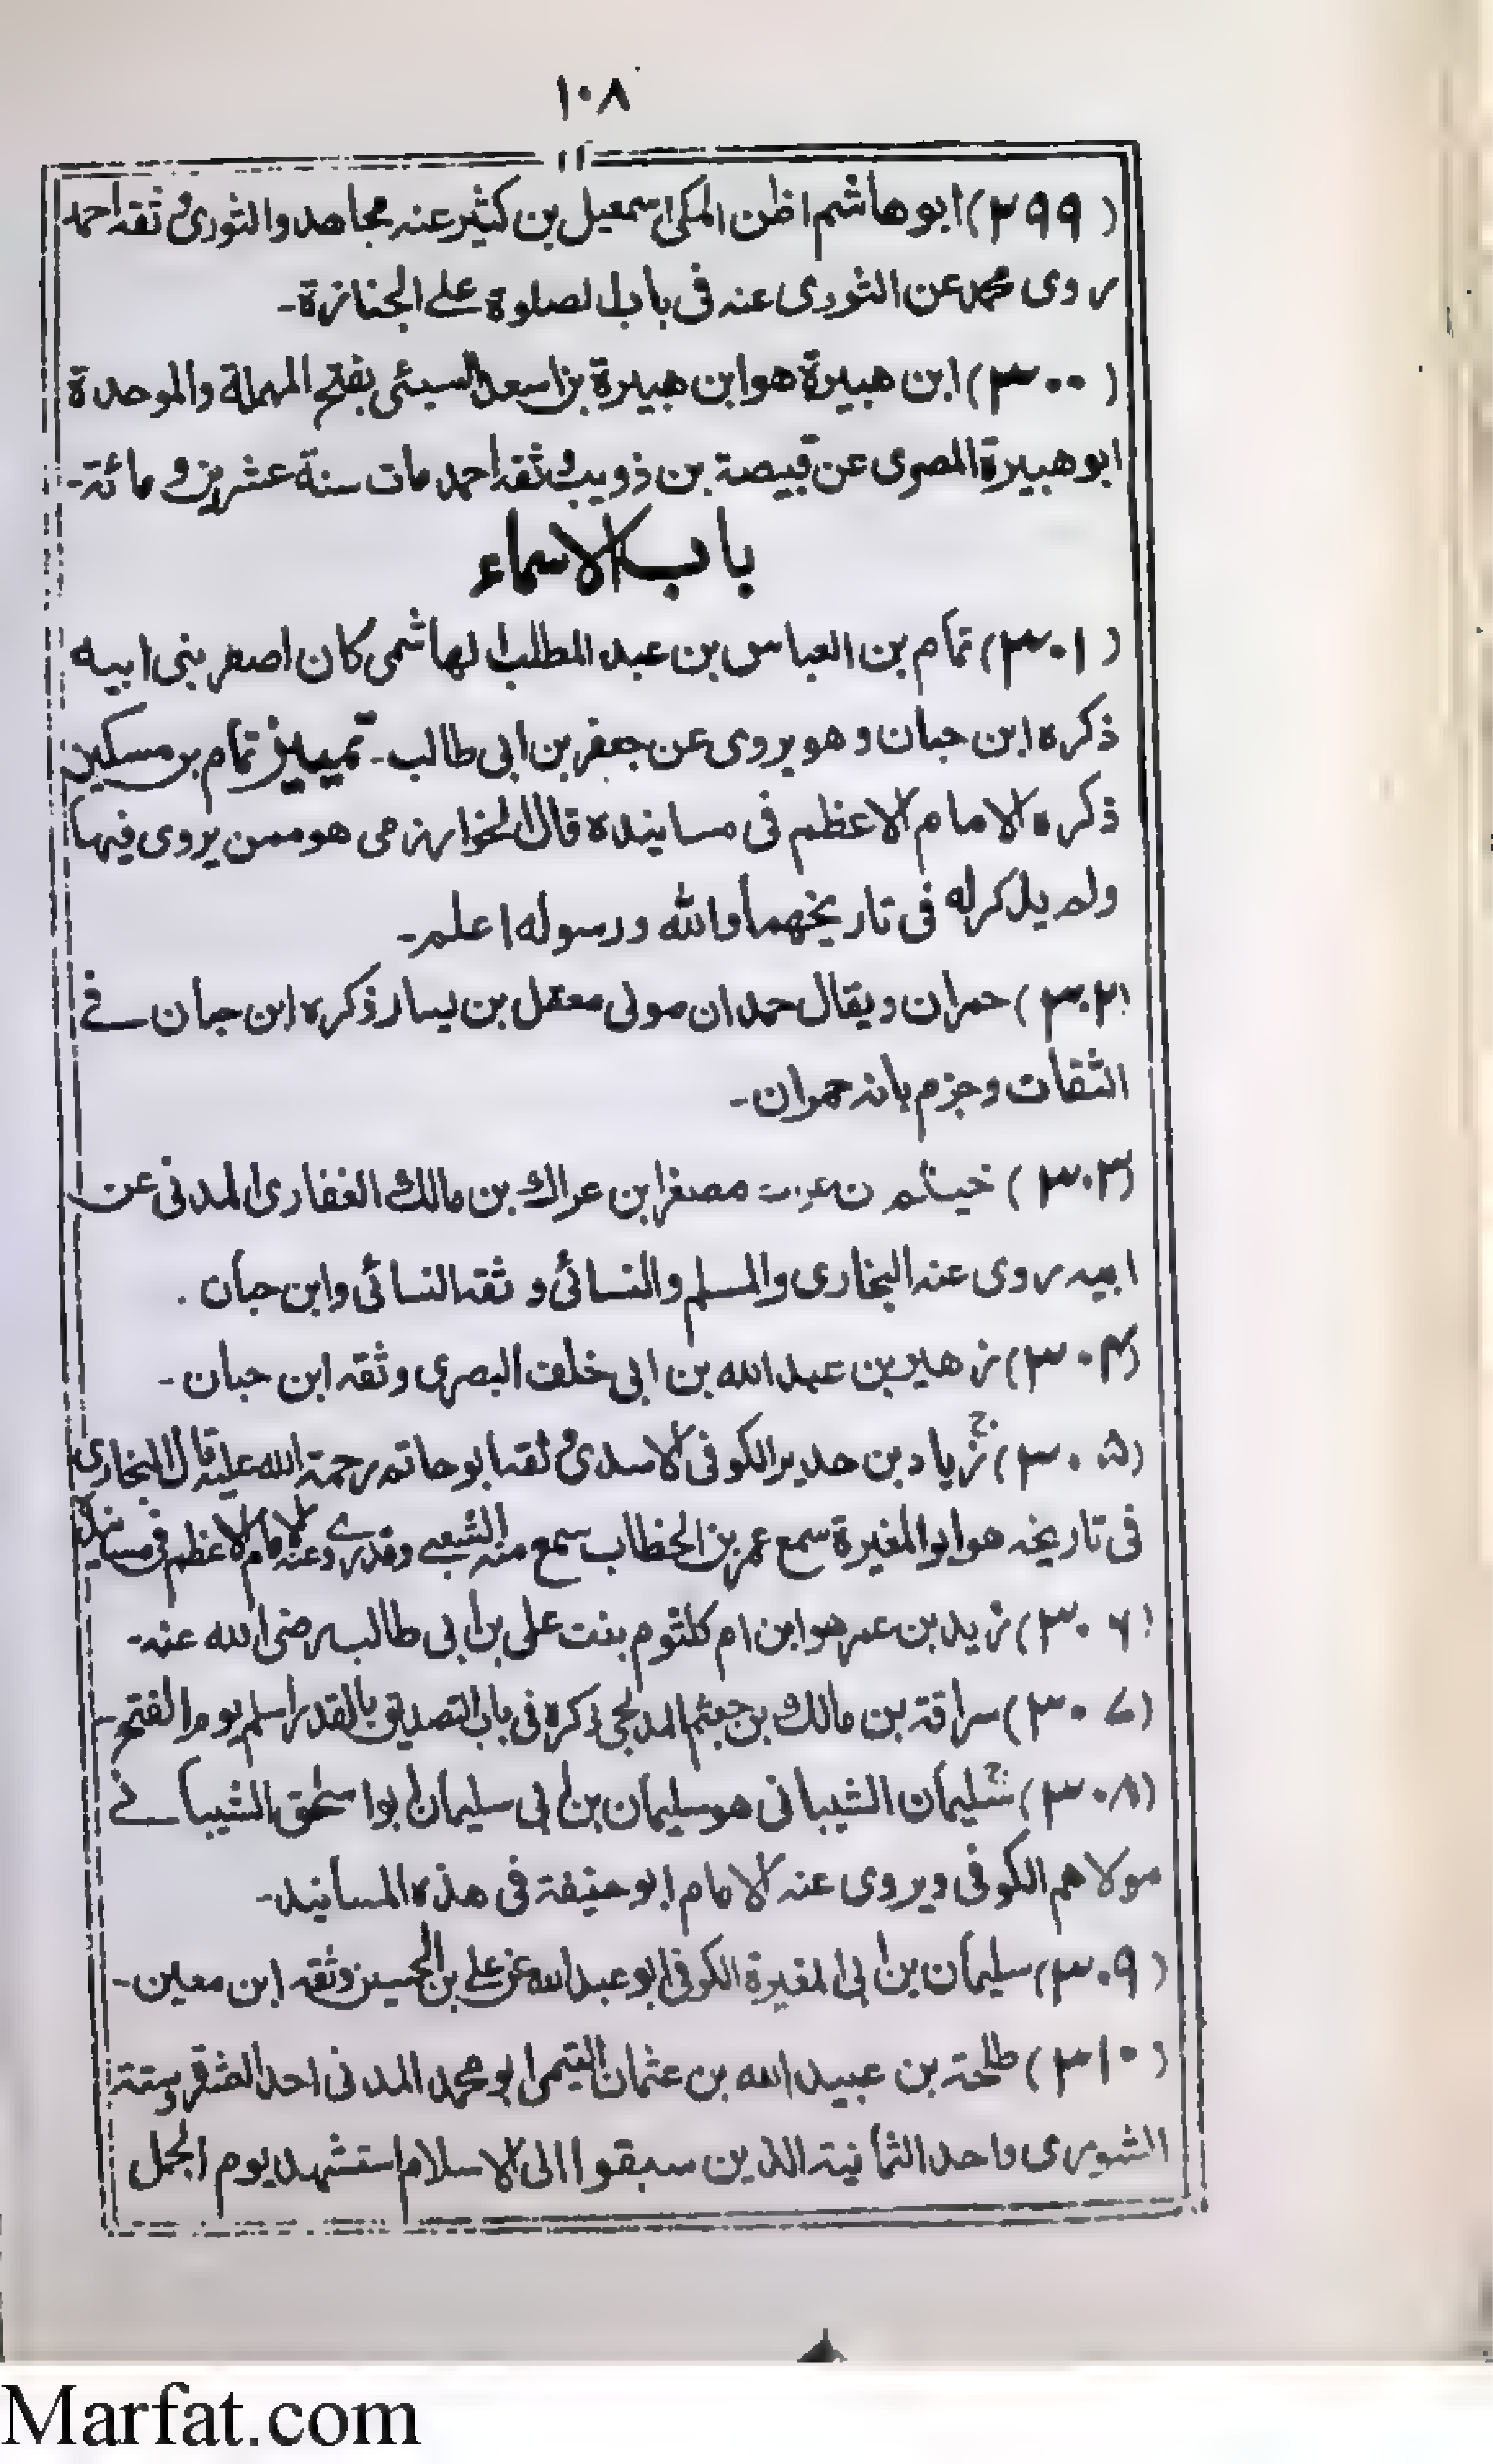 ١٠٨
(٢٩٩) ابو هاشم اظن المكي اسمعيل بن كثير عنه مجاهد والثوري وثقه احمد
روى محمد عن الثوري عنه فى باب الصلوة على الجنازة۔
(٣٠٠) ابن هبيرة هو ابن هبيرة بن اسعد السبئي بفتح المهملة والموحدة
ابو هبيرة المصرى عن قبيصة بن ذويب وثقه احمد مات سنة عشرين و مائة۔
باب الاسماء
(٣٠١) تمام بن العباس بن عبد المطلب الهاشمى كان اصغر بنى ابيه
ذكره ابن حبان وهو يروى عن جعفر بن ابى طالب۔ تمييز تمام بن مسكين
ذكره الامام الاعظم فى مسانيده قال الخوارزمى هو ممن يروى فيها
ولم يذكر له فى تاريخهما والله ورسوله اعلم۔
(٣٠٢) حمران ويقال حمدان مولى معقل بن يسار ذكره ابن حبان فے
الثقات وجزم بانه حمران۔
(٣٠٣) خيثم مصغرا بن عراك بن مالك الغفارى المدنى عن
ابيه روى عنه البخارى والمسلم والنسائى و ثقه النسائى وابن حبان .
(٣٠٤) زهير بن عبد الله بن ابى خلف البصرى وثقه ابن حبان۔
(٣٠٥) زياد بن حدير الكوفى الاسدى وثقه ابو حاتم رحمة الله عليه قال البخارى
فى تاريخه هو ابو المغيرة سمع عمر بن الخطاب سمع منه الشعبے وقد روے عنه الامام الاعظم فى مسانيده
(٣٠٦) زيد بن عمر هو ابن ام كلثوم بنت على بن ابى طالب رضى الله عنه۔
(٣٠٧) سراقة بن مالك بن جعثم المدلجى ذكره فى باب التصديق بالقدر اسلم يوم الفتح۔
(٣٠٨) سليمان الشيبانى هو سليمان بن ابى سليمان ابو اسحق الشيبانے
مولاهم الكوفى ويروى عنه الامام ابو حنيفة فى هذه المسانيد۔
(٣٠٩) سليمان بن ابى المغيرة الكوفى ابو عبد الله عن على بن الحسين وثقه ابن معين۔
(٣١٠) طلحة بن عبيد الله بن عثمان التيمى ابو محمد المدنى احد العشرة وستة
الشورى واحد الثمانية الذين سبقوا الى الاسلام استشهد يوم الجمل
Marfat.com